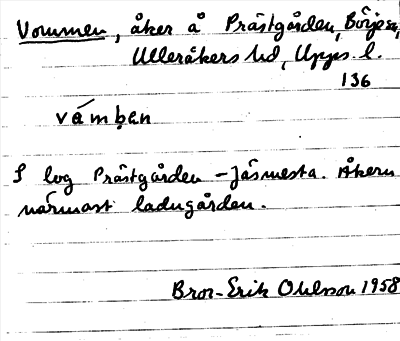 Vommen, åker å Prästgården, Börje sn,
Ulleråkers hd, Upps. l.
136
våmbɛn
I log Prästgården – Jäsmesta. Åkern
närmast ladugården.
Bror-Erik Ohlsson 1958